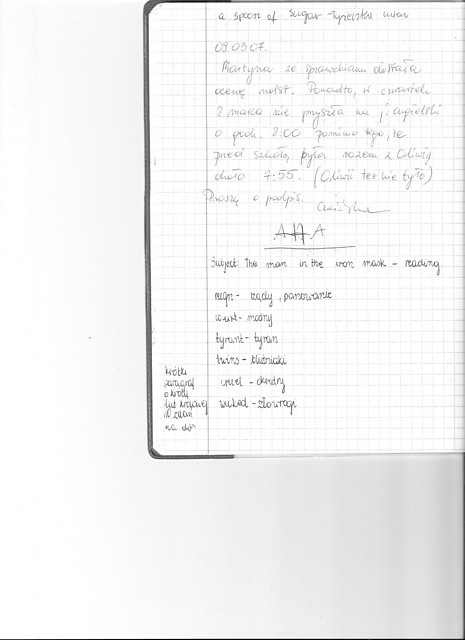 a spoon of sugar - łyżeczka cukru
09.03.07.
Martyna ze sprawdzianu dostała
ocenę ndst. Ponadto, w czwartek
8 marca nie przyszła na j. angielski
o godz. 8:00 pomimo tego, że
przed szkołą była razem z Oliwią
około 7:55. (Oliwii też nie było)
Proszę o podpis.
Subject: The man in the iron mask - reading
reign - rządy, panowanie
tyrant - tyran
twins - bliźniaki
cruel - okrutny
wicked - złowrogi
krótki
paragraf
o królu
10 zdań